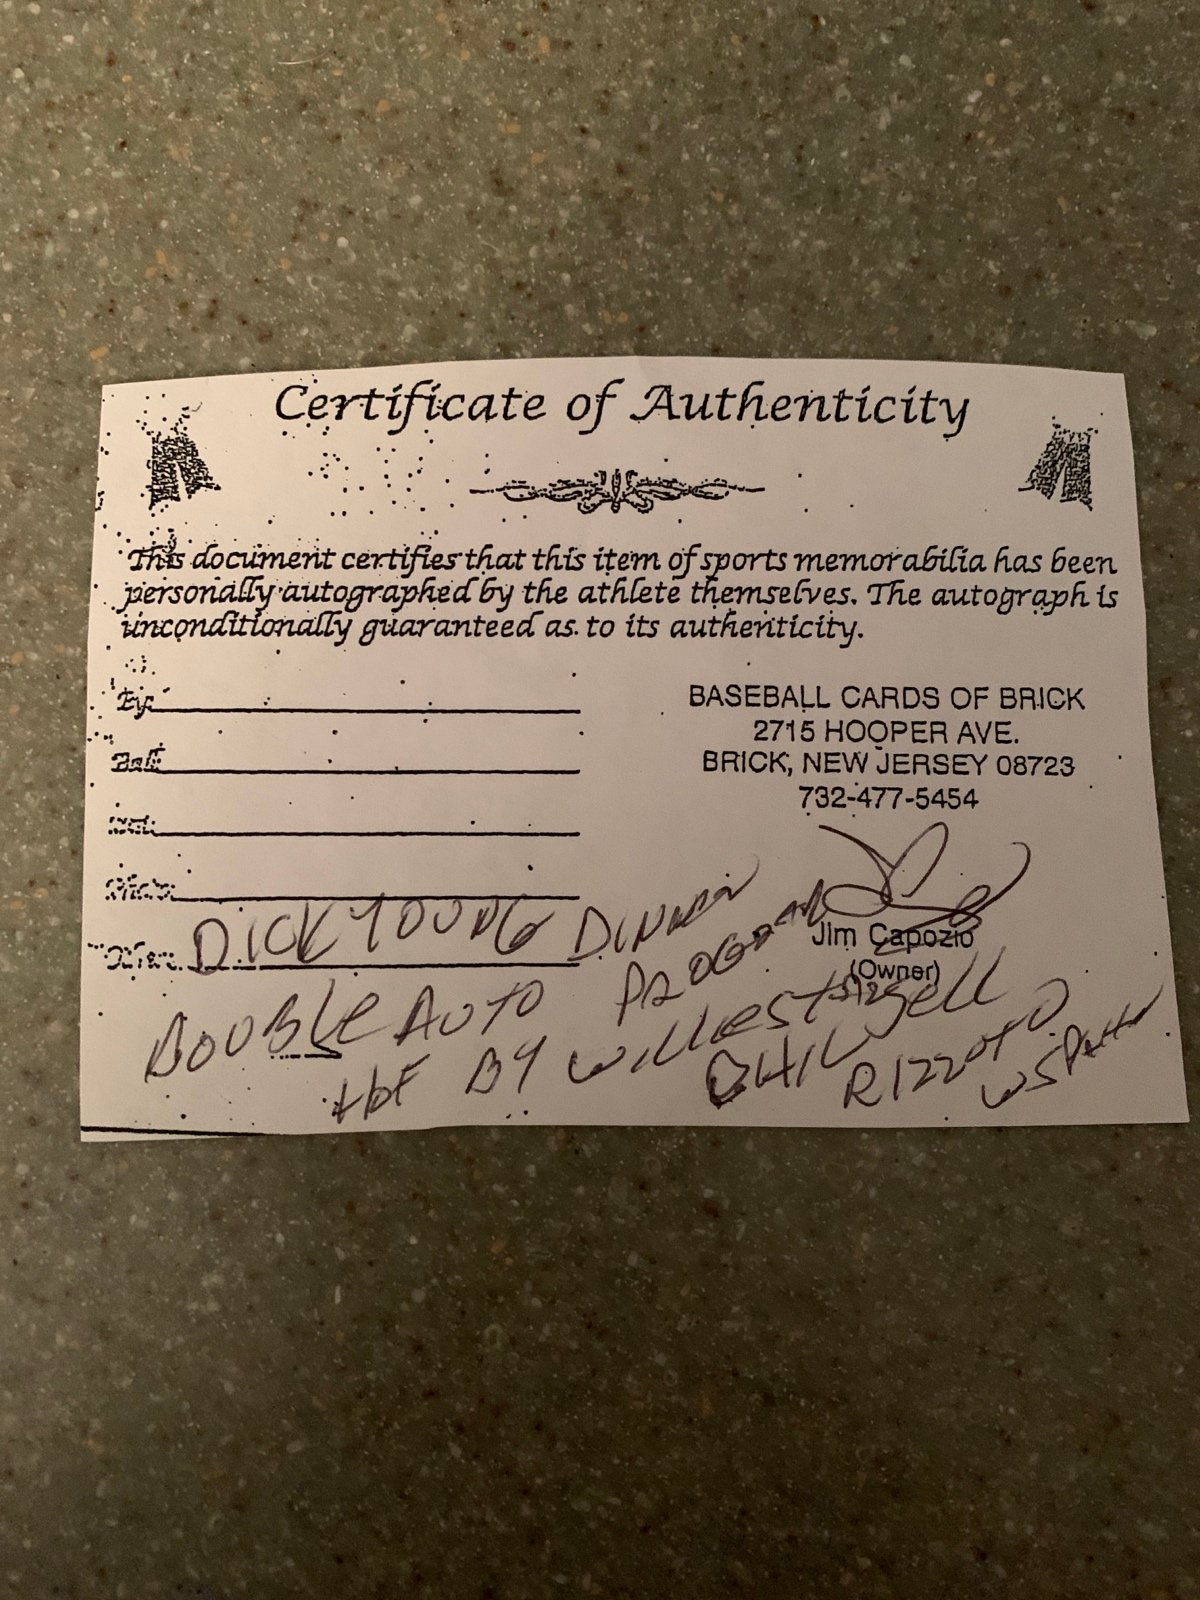 Certificate of Authenticity
This document certifies that this item of sports memorabilia has been
personally autographed by the athlete themselves. The autograph is
unconditionally guaranteed as to its authenticity.
BASEBALL CARDS OF BRICK
2715 HOOPER AVE.
BRICK, NEW JERSEY 08723
732-477-5454
Jim Capozio
(Owner)
DICK YOUNG DINNER
PROGRAM
DOUBLE AUTO
HOF BY WILLIE STARGELL
PHIL RIZZUTO